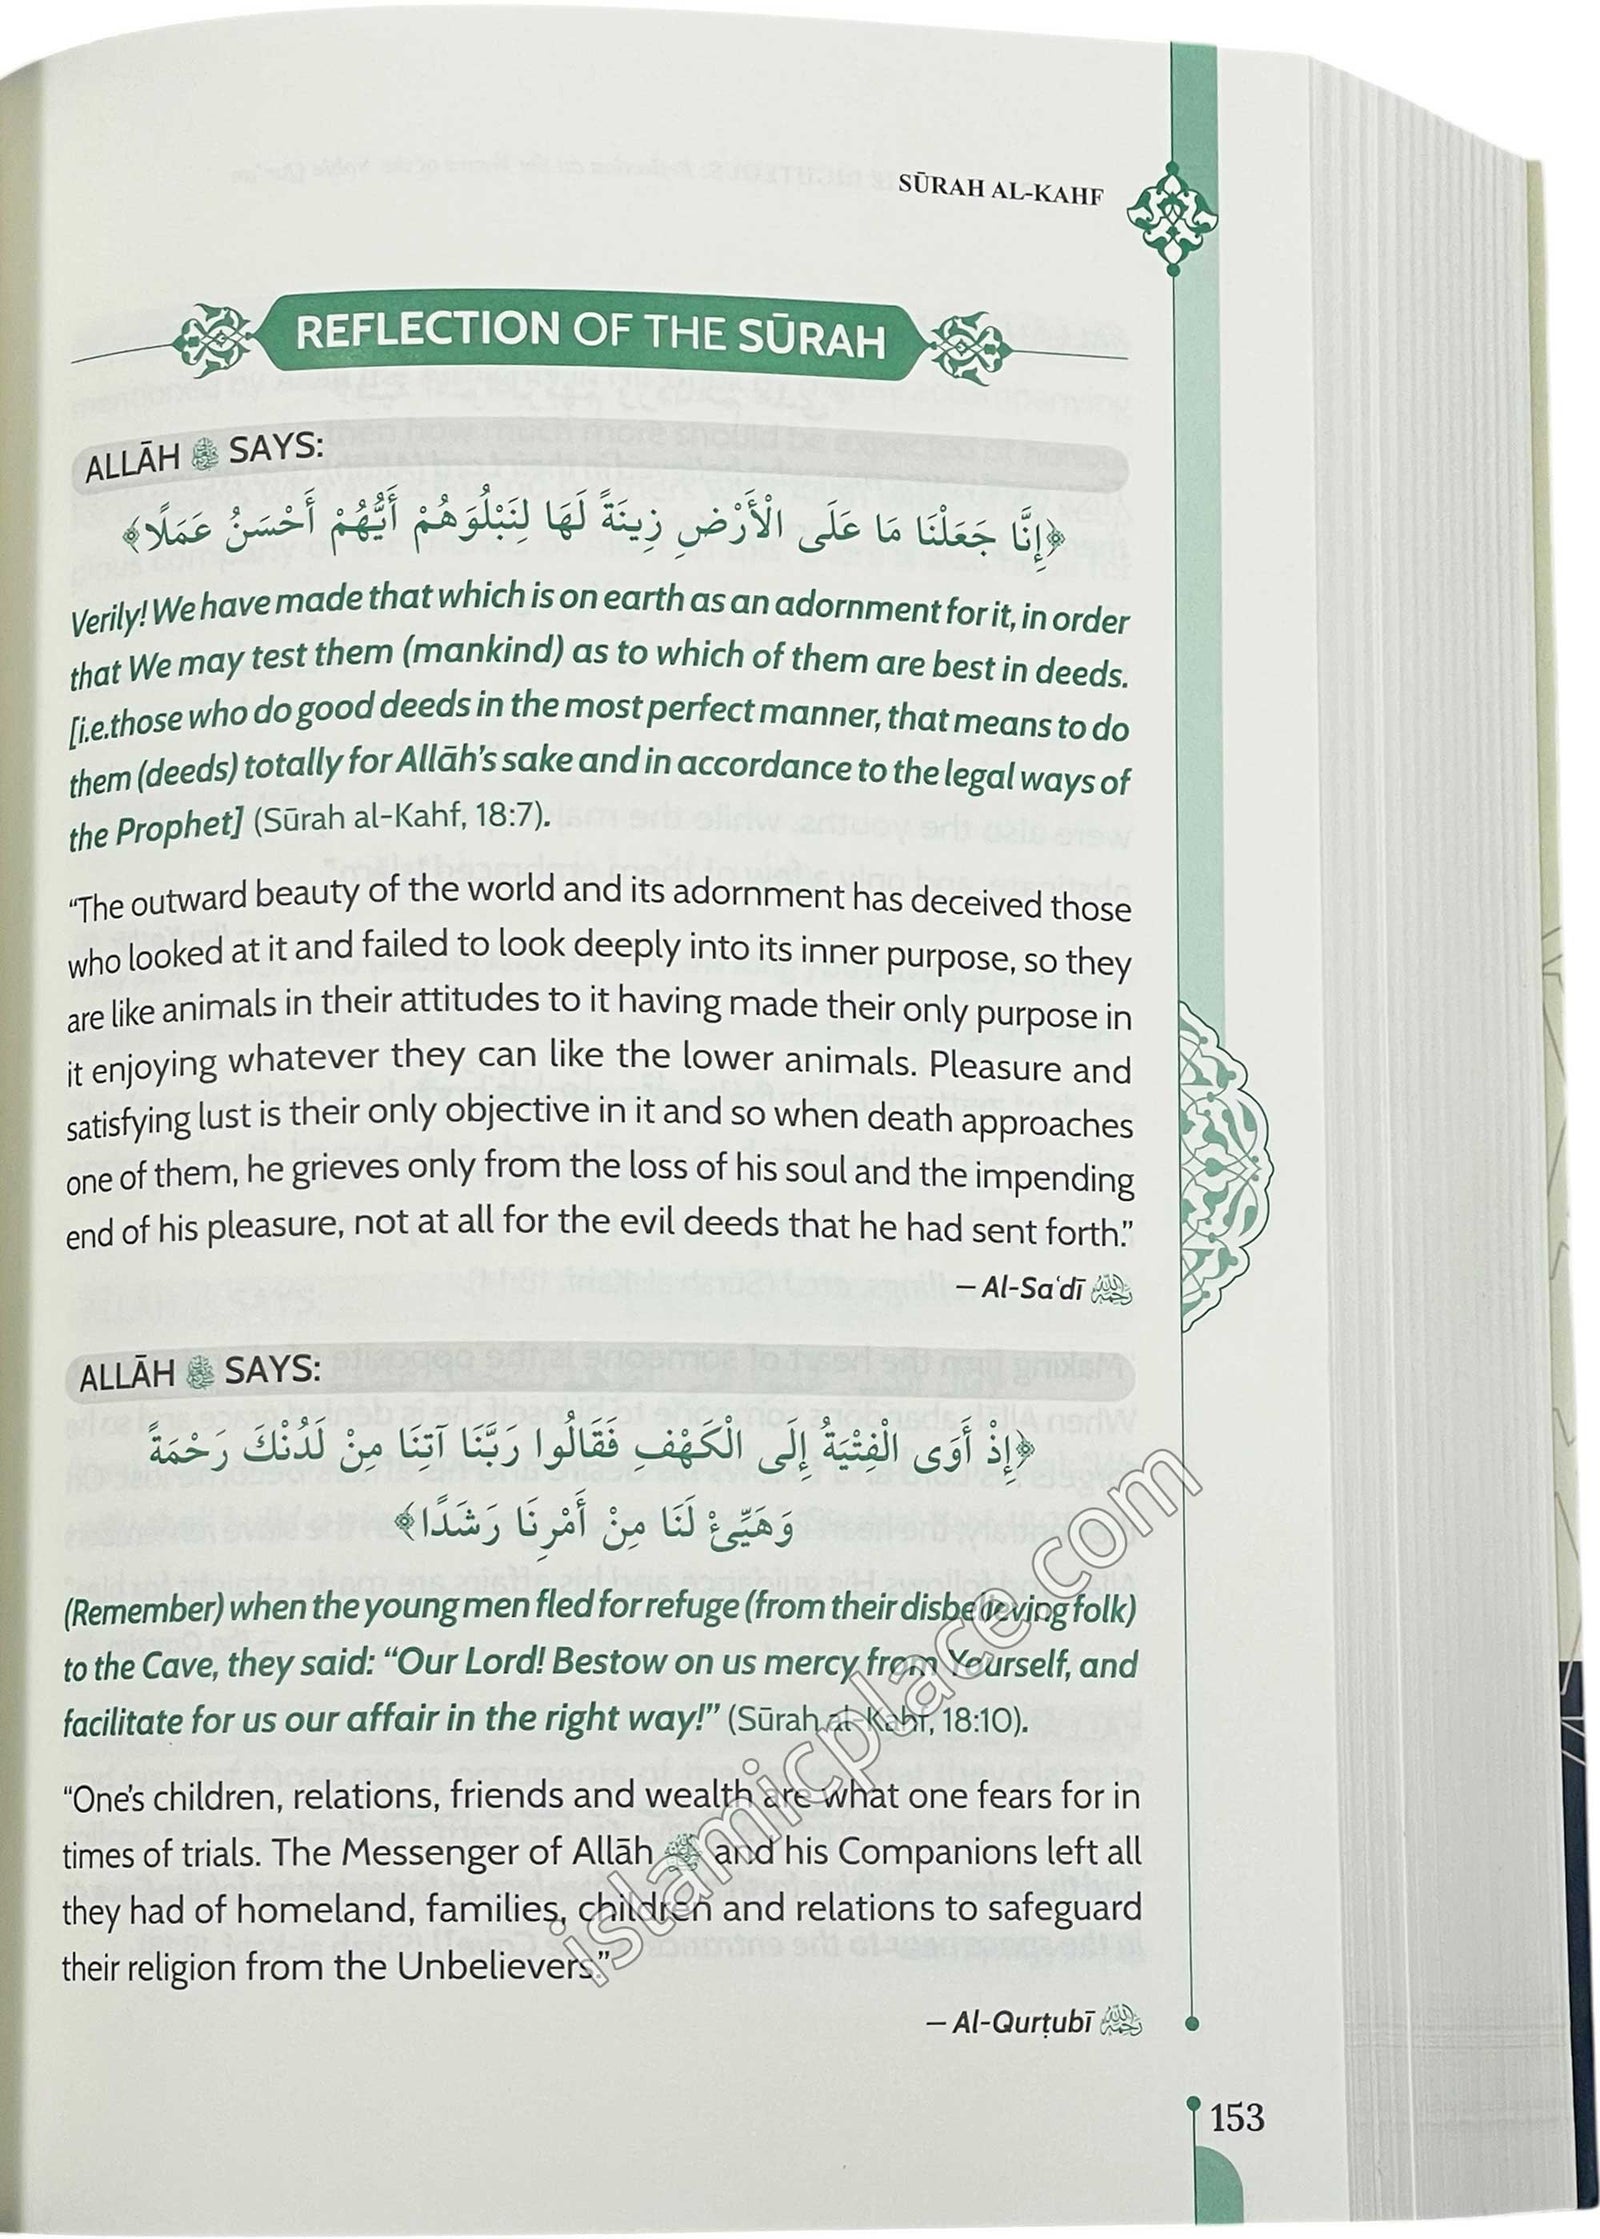 SŪRAH AL-KAHF
REFLECTION OF THE SŪRAH
ALLĀH ﷻ SAYS:
﴿إِنَّا جَعَلْنَا مَا عَلَى الْأَرْضِ زِينَةً لَهَا لِنَبْلُوَهُمْ أَيُّهُمْ أَحْسَنُ عَمَلًا﴾
Verily! We have made that which is on earth as an adornment for it, in order
that We may test them (mankind) as to which of them are best in deeds.
[i.e.those who do good deeds in the most perfect manner, that means to do
them (deeds) totally for Allāh's sake and in accordance to the legal ways of
the Prophet] (Sūrah al-Kahf, 18:7).
“The outward beauty of the world and its adornment has deceived those
who looked at it and failed to look deeply into its inner purpose, so they
are like animals in their attitudes to it having made their only purpose in
it enjoying whatever they can like the lower animals. Pleasure and
satisfying lust is their only objective in it and so when death approaches
one of them, he grieves only from the loss of his soul and the impending
end of his pleasure, not at all for the evil deeds that he had sent forth.”
– Al-Saʿdī رحمه الله
ALLĀH ﷻ SAYS:
﴿إِذْ أَوَى الْفِتْيَةُ إِلَى الْكَهْفِ فَقَالُوا رَبَّنَا آتِنَا مِنْ لَدُنْكَ رَحْمَةً
وَهَيِّئْ لَنَا مِنْ أَمْرِنَا رَشَدًا﴾
(Remember) when the young men fled for refuge (from their disbelieving folk)
to the Cave, they said: “Our Lord! Bestow on us mercy from Yourself, and
facilitate for us our affair in the right way!” (Sūrah al-Kahf, 18:10).
“One's children, relations, friends and wealth are what one fears for in
times of trials. The Messenger of Allāh ﷺ and his Companions left all
they had of homeland, families, children and relations to safeguard
their religion from the Unbelievers.”
– Al-Qurṭubī رحمه الله
153
islamicplace.com